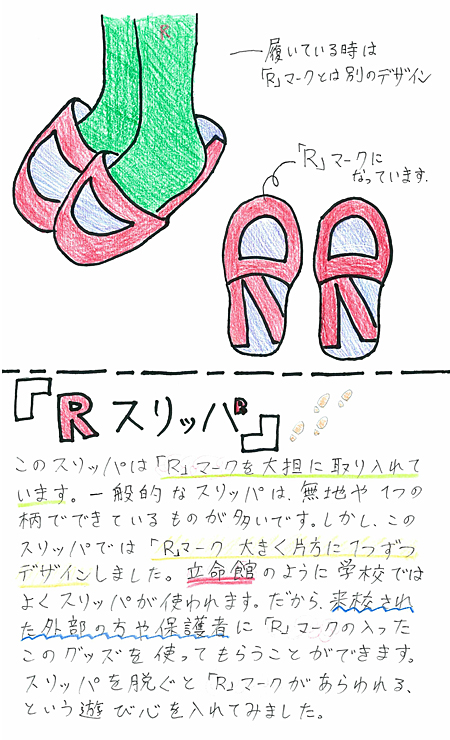 R
履いている時は
「R」マークとは別のデザイン
「R」マークに
なっています.
『RスリッパR』
このスリッパは「R」マークを大担に取り入れて
います。一般的なスリッパは、無地や1つの
柄でできているものが多いです。しかし、この
スリッパでは「R」マーク 大きく片方に1つずつ
デザインしました。立命館のように学校では
よくスリッパが使われます。だから、来校され
た外部の方や保護者に「R」マークの入った
このグッズを使ってもらうことができます。
スリッパを脱ぐと「R」マークがあらわれる、
という遊び心を入れてみました。